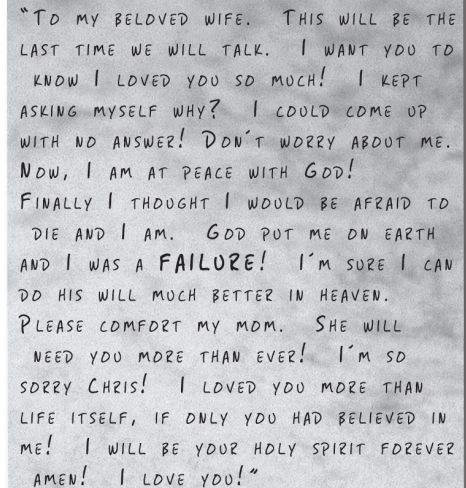 “To my beloved wife. This will be the
last time we will talk. I want you to
know I loved you so much! I kept
asking myself why? I could come up
with no answer! Don't worry about me.
Now, I am at peace with God!
Finally I thought I would be afraid to
die and I am. God put me on earth
and I was a FAILURE! I'm sure I can
do his will much better in heaven.
Please comfort my mom. She will
need you more than ever! I'm so
sorry Chris! I loved you more than
life itself, if only you had believed in
me! I will be your holy spirit forever
amen! I love you!”